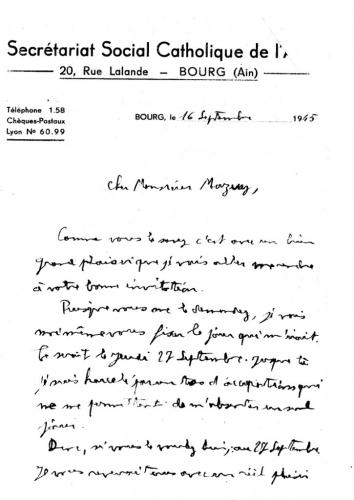 Secrétariat Social Catholique de l'A
20, Rue Lalande — BOURG (Ain)
Téléphone 1.58
Chèques-Postaux
Lyon N° 60.99
BOURG, le 16 Septembre 1945
Cher Monsieur
Comme vous le savez c'est avec un bien
grand plaisir que je vais aller
à votre bonne invitation.
Puisque vous me le demandez, je vais
moi même vous fixer le jour qui m'irait.
Ce serait le jeudi 27 Septembre. Jusque là
je suis harcelé par un tas d'occupations qui
ne me permettent de m'absenter un seul
jour.
Donc, si vous le voulez bien, au 27 Septembre
Je vous reverrai tous avec un réel plaisir